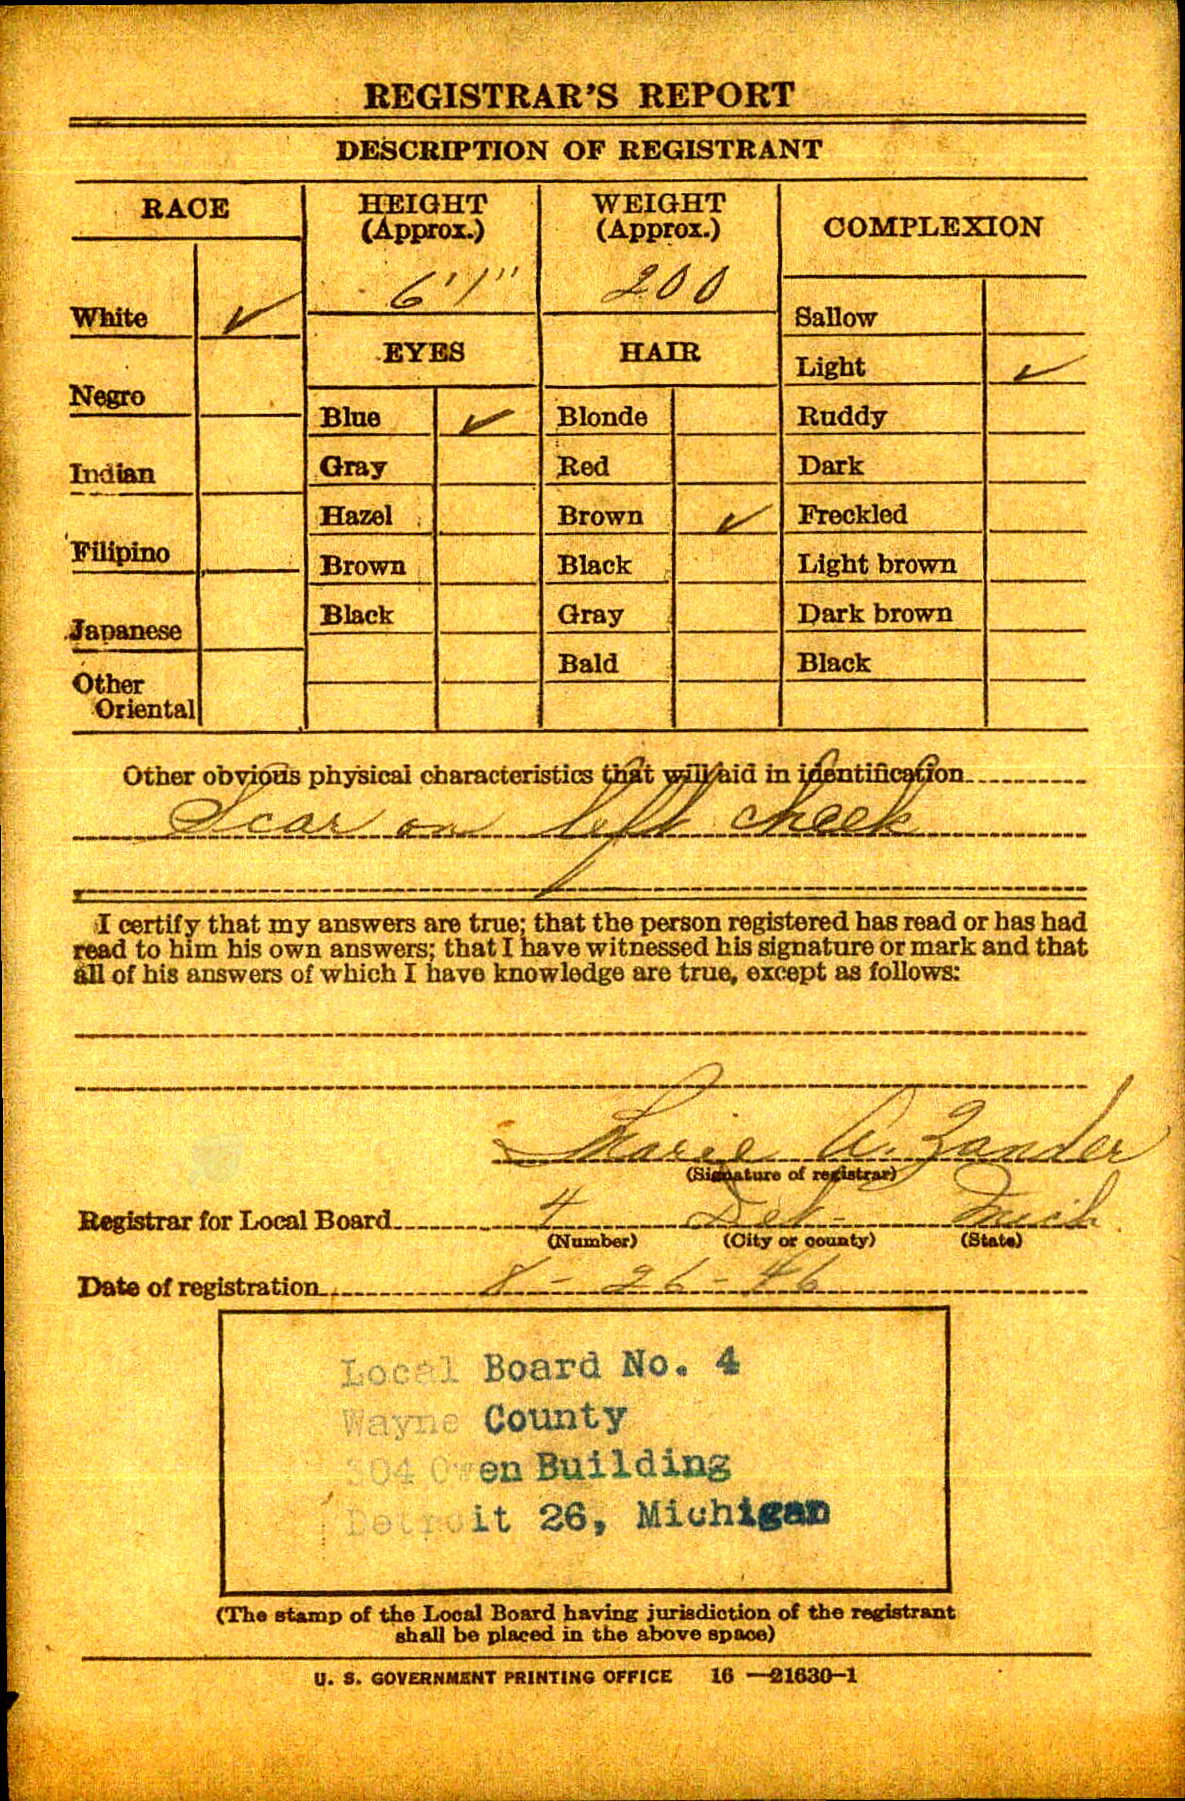 REGISTRAR'S REPORT
DESCRIPTION OF REGISTRANT
RACE
White ✓
Negro
Indian
Filipino
Japanese
Other
Oriental
HEIGHT
(Approx.)
6'1"
EYES
Blue ✓
Gray
Hazel
Brown
Black
WEIGHT
(Approx.)
200
HAIR
Blonde
Red
Brown ✓
Black
Gray
Bald
COMPLEXION
Sallow
Light ✓
Ruddy
Dark
Freckled
Light brown
Dark brown
Black
Other obvious physical characteristics that will aid in identification
Scar on left cheek
I certify that my answers are true; that the person registered has read or has had
read to him his own answers; that I have witnessed his signature or mark and that
all of his answers of which I have knowledge are true, except as follows:
Marie A. Zander
(Signature of registrar)
Registrar for Local Board 4 Det- Mich.
(Number) (City or county) (State)
Date of registration 8-26-46
Local Board No. 4
Wayne County
304 Owen Building
Detroit 26, Michigan
(The stamp of the Local Board having jurisdiction of the registrant
shall be placed in the above space)
U. S. GOVERNMENT PRINTING OFFICE 16—21630-1